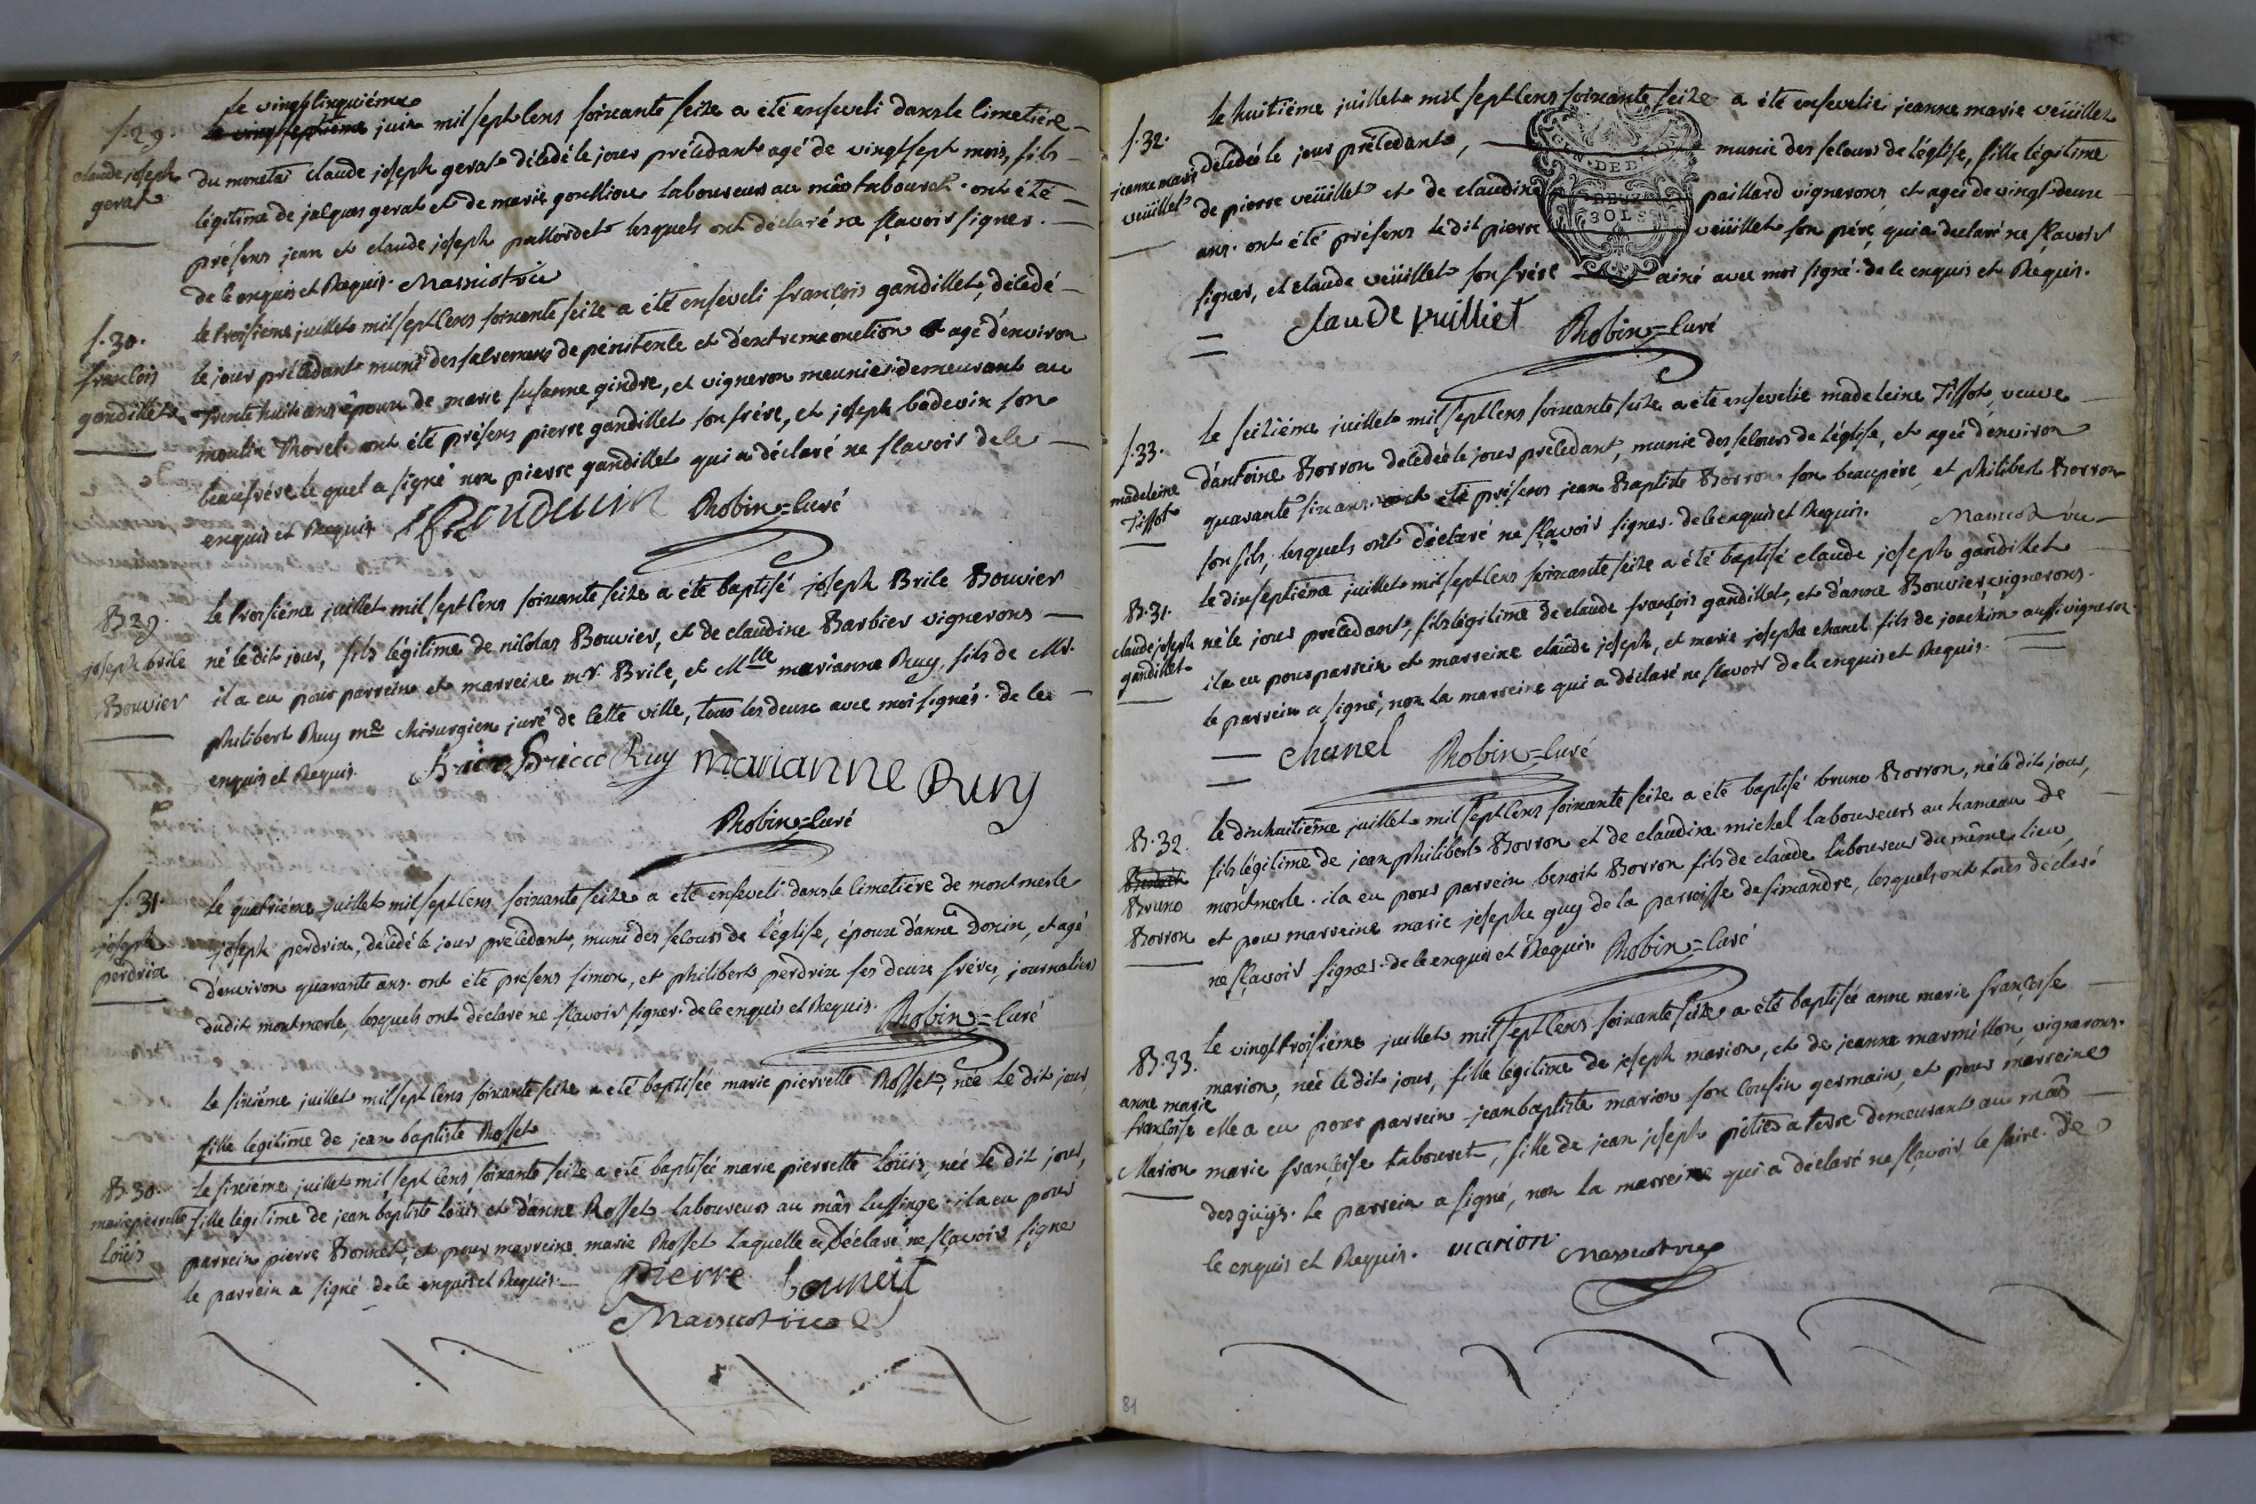 s. 29.
claude joseph
gerat
le vingtcinquiéme
le vingtseptiéme juin mil sept cens soixante seize a été enseveli dans le cimetiére
du monetai claude joseph gerat décédé le jour précédant agé de vingt sept mois, fils
légitime de jacques gerat et de marie gouttion laboureurs au mâs tabouret. ont été
présens jean et claude joseph pallordet lesquels ont déclaré ne sçavoir signer.
de ce enquis et Requis. Massicot vic
s. 30.
françois
gandillet
le troisiéme juillet mil sept cens soixante seize a été enseveli françois gandillet, décédé
le jour précédant muni des sacremens de pénitence et d'extreme onction et agé d'environ
trente huit ans époux de marie susanne gindre, et vigneron meunier demeurant au
moulin Thorel. ont été présens pierre gandillet son frére, et joseph badevin son
beaufrére le quel a signé non pierre gandillet qui a déclaré ne sçavoir de ce
enquis et Requis J Bouduin Robin = Curé
B 29.
joseph brice
Bouvier
le troisiéme juillet mil sept cens soixante seize a été baptisé joseph Brice Bouvier
né le dit jour, fils légitime de nicolas Bouvier, et de claudine Barbier vignerons
il a eu pour parrein et marreine mr. Brice, et Mlle marianne Ruy, fils de Mr.
philibert Ruy me chirurgien juré de cette ville, tous les deux avec moi signés. de ce
enquis et Requis. Brice Ruy marianne Ruy
Robin = Curé
s. 31.
joseph
perdrix
Le quatriéme juillet mil sept cens soixante seize a été enseveli dans le cimetiére de montmerle
joseph perdrix, décédé le jour précédant, muni des secours de l'église, époux d'anne donin, et agé
d'environ quarante ans. ont été présens simon, et philibert perdrix ses deux fréres, journaliers
dudit montmerle, lesquels ont déclaré ne sçavoir signer. de ce enquis et Requis. Robin = Curé
Le sixiéme juillet mil sept cens soixante seize a été baptisée marie pierrette Rosset, née le dit jour
fille légitime de jean baptiste Rosset
B. 30.
marie pierrette
Loüis
Le sixiéme juillet mil sept cens soixante seize a été baptisée marie pierrette Loüis, née le dit jour,
fille légitime de jean baptiste Loüis et d'anne Rosset laboureurs au mâs Lussinge. il a eu pour
parrein pierre Bonnet, et pour marreine marie Rosset laquelle a déclaré ne sçavoir signer
le parrein a signé de ce enquis et Requis. pierre bouneit
Massicot vic
s. 32.
jeanne marie
veüillet
le huitiéme juillet mil sept cens soixante seize a été ensevelie jeanne marie veüillet
décédée le jour précédant, munie des secours de l'église, fille légitime
de pierre veüillet et de claudine paillard vignerons et agée de vingt deux
ans. ont été présens le dit pierre veüillet son pére, qui a declaré ne sçavoir
signer, et claude veüillet son frére ainé avec moi signé. de ce enquis et Requis.
claude vuilliet Robin = Curé
s. 33.
madeleine
Tissot
Le seiziéme juillet mil sept cens soixante seize a été ensevelie madeleine Tissot, veuve
d'antoine Borron decedée le jour précédant, munie des secours de l'église, et agée d'environ
quarante six ans. ont été présens jean Baptiste Borron son beaupére, et philibert Borron
son fils, lesquels ont déclaré ne sçavoir signer. de ce enquis et Requis. Massicot vic
B. 31.
claude joseph
gandillet
Le dix septiéme juillet mil sept cens soixante seize a été baptisé claude joseph gandillet
né le jour precedant, fils légitime de claude françois gandillet, et d'anne Bouvier, vignerons.
il a eu pour parrein et marreine claude joseph, et marie josephe chanel fils de joachim aussi vigneron.
le parrein a signé, non la marreine qui a déclaré ne sçavoir de ce enquis et Requis.
chanel Robin = Curé
B. 32.
Bruno
Borron
le dixhuitiéme juillet mil sept cens soixante seize a été baptisé bruno Borron, né le dit jour,
fils légitime de jean philibert Borron et de claudine michel laboureurs au hameau de
montmerle. il a eu pour parrein benoit Borron fils de claude laboureur du même lieu,
et pour marreine marie josephe guy de la parroisse de simandre, lesquels ont tous déclaré
ne sçavoir signer. de ce enquis et Requis. Robin = Curé
B. 33.
anne marie
françoise
Marion
Le vingt troisiéme juillet mil sept cens soixante seize a été baptisée anne marie françoise
marion, née le dit jour, fille légitime de joseph marion, et de jeanne marmillon, vignerons.
elle a eu pour parrein jean baptiste marion son cousin germain, et pour marreine
marie françoise tabouret, fille de jean joseph pitied a terre demeurant au mâs
des guys. le parrein a signé, non la marreine qui a déclaré ne sçavoir le faire. de
ce enquis et Requis. marion Massicot vic
81